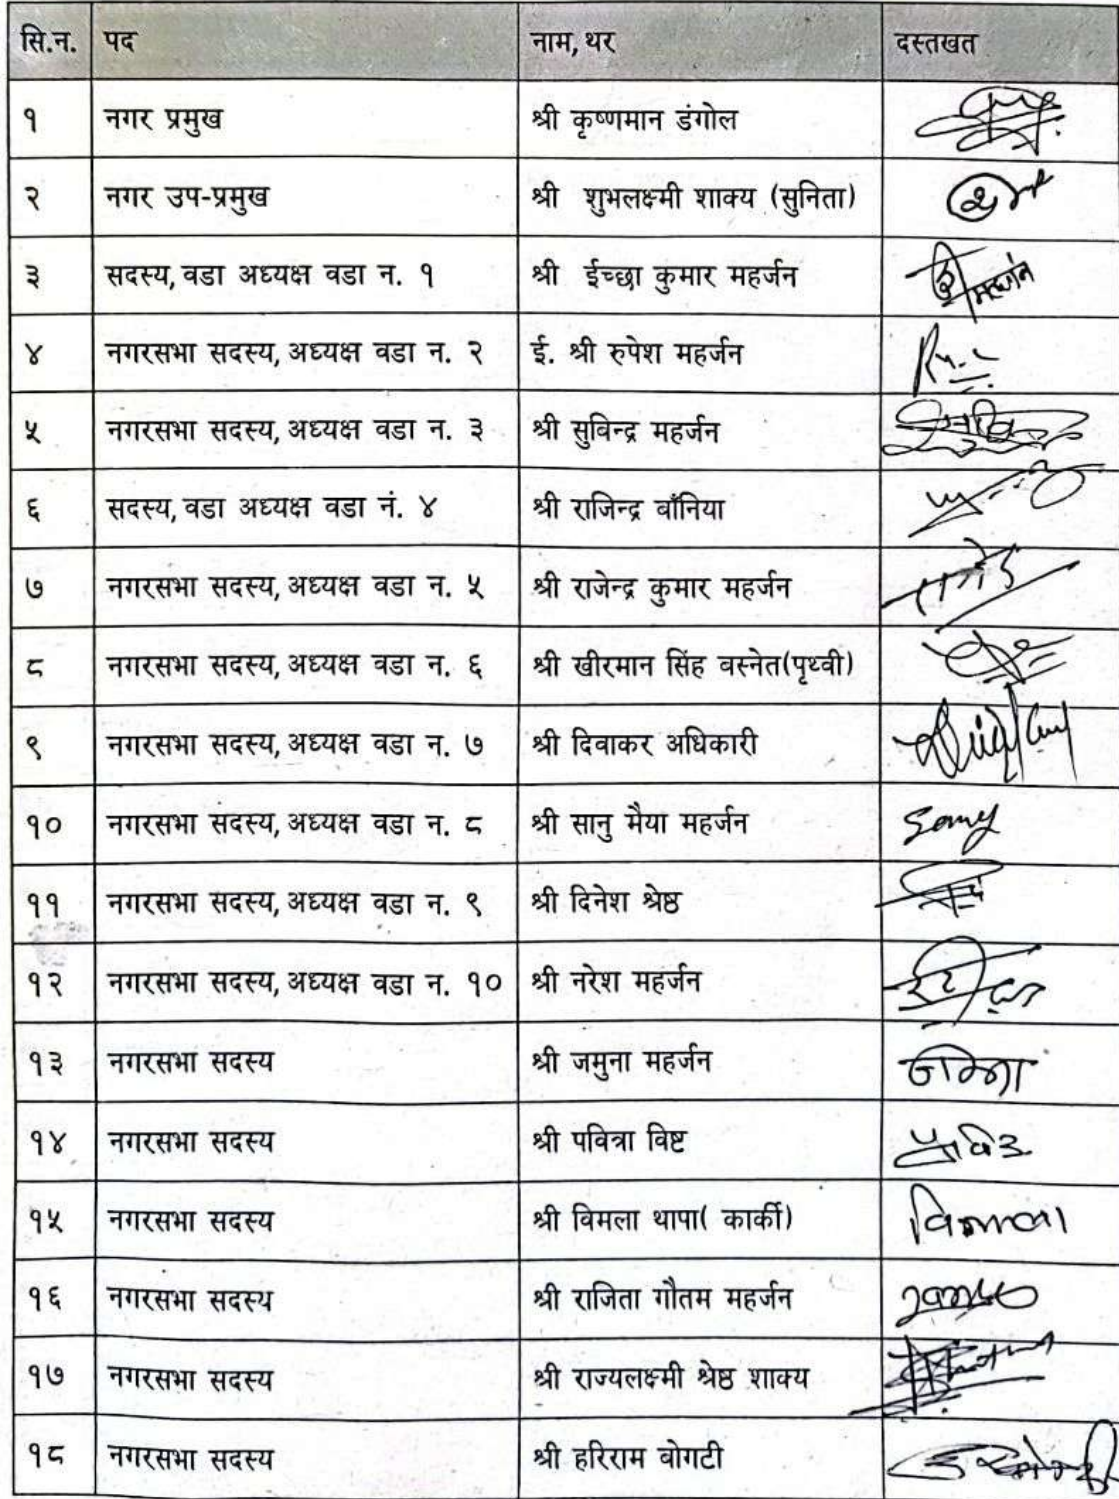 सि.न. पद नाम, थर दस्तखत
१ नगर प्रमुख श्री कृष्णमान डंगोल
२ नगर उप-प्रमुख श्री शुभलक्ष्मी शाक्य (सुनिता)
३ सदस्य, वडा अध्यक्ष वडा न. १ श्री ईच्छा कुमार महर्जन
४ नगरसभा सदस्य, अध्यक्ष वडा न. २ ई. श्री रुपेश महर्जन
५ नगरसभा सदस्य, अध्यक्ष वडा न. ३ श्री सुविन्द्र महर्जन
६ सदस्य, वडा अध्यक्ष वडा नं. ४ श्री राजिन्द्र बाँनिया
७ नगरसभा सदस्य, अध्यक्ष वडा न. ५ श्री राजेन्द्र कुमार महर्जन
८ नगरसभा सदस्य, अध्यक्ष वडा न. ६ श्री खीरमान सिंह वस्नेत(पृथ्वी)
९ नगरसभा सदस्य, अध्यक्ष वडा न. ७ श्री दिवाकर अधिकारी
१० नगरसभा सदस्य, अध्यक्ष वडा न. ८ श्री सानु मैया महर्जन
११ नगरसभा सदस्य, अध्यक्ष वडा न. ९ श्री दिनेश श्रेष्ठ
१२ नगरसभा सदस्य, अध्यक्ष वडा न. १० श्री नरेश महर्जन
१३ नगरसभा सदस्य श्री जमुना महर्जन
१४ नगरसभा सदस्य श्री पवित्रा विष्ट
१५ नगरसभा सदस्य श्री विमला थापा( कार्की)
१६ नगरसभा सदस्य श्री राजिता गौतम महर्जन
१७ नगरसभा सदस्य श्री राज्यलक्ष्मी श्रेष्ठ शाक्य
१८ नगरसभा सदस्य श्री हरिराम बोगटी